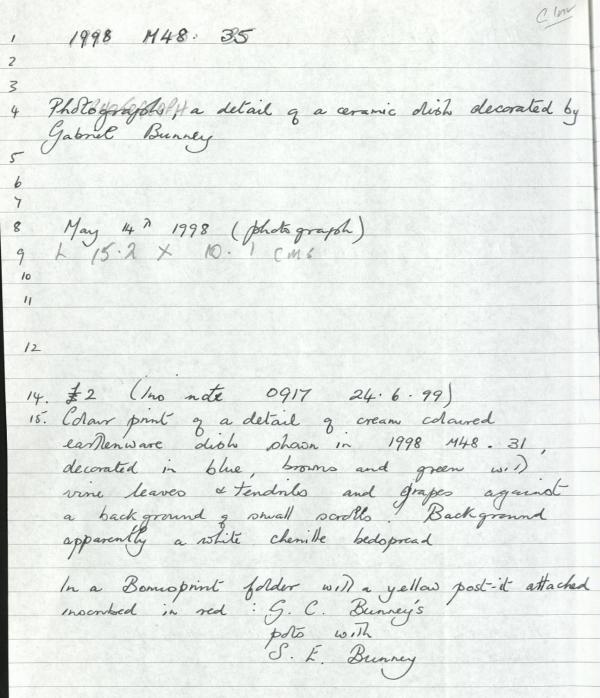 C Inv
1 1998 M48. 35
2
3
4 Photograph, a detail of a ceramic dish decorated by
Gabriel Bunney
5
6
7
8 May 14th 1998 (photograph)
9 L 15.2 X 10.1 cms
10
11
12
14. £2 (Ins note 0917 24.6.99)
15. Colour print of a detail of cream coloured
earthenware dish shown in 1998 M48.31,
decorated in blue, browns and green with
vine leaves & tendrils and grapes against
a background of small scrolls. Background
apparently a white chenille bedspread
In a Bonusprint folder with a yellow post-it attached
inscribed in red: G. C. Bunney's
pots with
S. E. Bunney